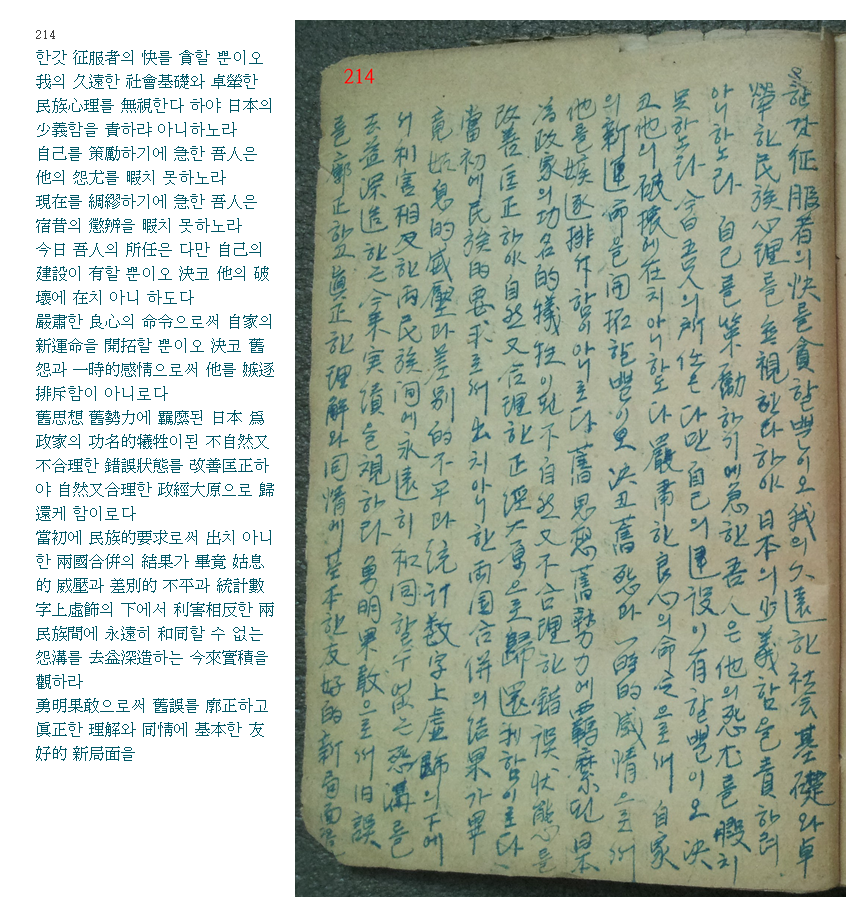 214
한갓 征服者의 快를 貪할 뿐이오
我의 久遠한 社會基礎와 卓犖한
民族心理를 無視한다 하야 日本의
少義함을 責하랴 아니하노라
自己를 策勵하기에 急한 吾人은
他의 怨尤를 暇치 못하노라
現在를 綢繆하기에 急한 吾人은
宿昔의 懲辨을 暇치 못하노라
今日 吾人의 所任은 다만 自己의
建設이 有할 뿐이오 決코 他의 破
壞에 在치 아니 하도다
嚴肅한 良心의 命令으로써 自家의
新運命을 開拓할 뿐이오 決코 舊
怨과 一時的感情으로써 他를 嫉逐
排斥함이 아니로다
舊思想 舊勢力에 羈縻된 日本 爲
政家의 功名的犧牲이된 不自然又
不合理한 錯誤狀態를 改善匡正하
야 自然又合理한 政經大原으로 歸
還케 함이로다
當初에 民族的要求로써 出치 아니
한 兩國合倂의 結果가 畢竟 姑息
的 威壓과 差別的 不平과 統計數
字上虛飾의 下에서 利害相反한 兩
民族間에 永遠히 和同할 수 없는
怨溝를 去益深造하는 今來實積을
觀하라
勇明果敢으로써 舊誤를 廓正하고
眞正한 理解와 同情에 基本한 友
好的 新局面을
214
한갓 征服者의 快를 貪할뿐이오 我의 久遠한 社会基礎와 卓
犖한 民族心理를 無視한다하야 日本의 少義함을 責하려
아니하노라 自己를 策勵하기에 急한 吾人은 他의 怨尤를 暇치
못하노라 今日 吾人의 所任은 다만 自己의 建設이 有할뿐이오 決
코 他의 破壞에 在치 아니하도다 嚴肅한 良心의 命令으로써 自家
의 新運命을 開拓할뿐이오 決코 舊怨과 一時的感情으로써
他를 嫉逐排斥함이 아니로다 舊思想 舊勢力에 羈縻된 日本
爲政家의 功名的犧牲이된 不自然又不合理한 錯誤狀態를
改善匡正하야 自然又合理한 正經大原으로 歸還케함이로다
當初에 民族的要求로써 出치아니한 両国合併의 結果가 畢
竟 姑息的 威壓과 差別的 不平과 統計数字上虛飾의 下에
서 利害相反한 両民族間에 永遠히 和同할수없는 怨溝를
去益深造하는 今來実績을 視하라 勇明果敢으로써 旧誤
를 廓正하고 眞正한 理解와 同情에 基本한 友好的 新局面을